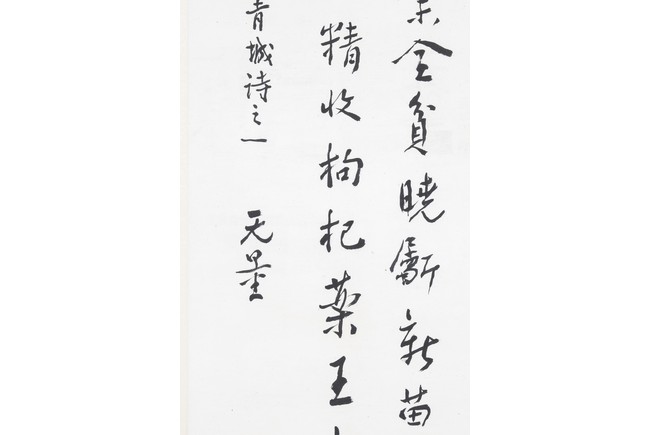 未全貧曉斸新苗
精收枸杞藥王
青城诗之一 无量